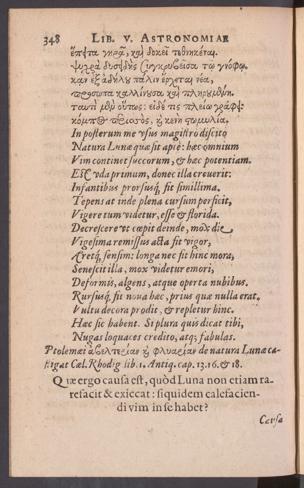 348 LIB. V. ASTRONOMIAE
ἔπειτα γηρᾷ, καὶ δοκεῖ τεθνηκέναι.
πάλιν ἔρχεται νέα,
πρόσωπα καλλίνουσα καὶ
In posterum me vsus magistro discito
Natura Lunæ quæ sit apte: hæc omnium
Vim continet succorum, & hæc potentiam.
Est vda primum, donec illa creuerit:
Infantibus prorsusq́, fit simillima.
Tepens at inde plena cursum perficit,
Vigere tum videtur, esse & florida.
Decrescere vt cœpit deinde, mox die
Vigesima remissus acta fit vigor,
Aretq́, sensim: longa nec fit hinc mora,
Senescit illa, mox videtur emori,
Deformis, algens, atque operta nubibus.
Rursusq́, fit noua hæc, prius quæ nulla erat,
Vultu decora prodit, & repletur hinc.
Hæc sic habent. Si plura quis dicat tibi,
Nugas loquaces credito, atq; fabulas.
Ptolemæi ἀβελτερίαν & φλυαρίαν de natura Lunæ ca-
stigat Cæl. Rhodig lib. 1. Antiq. cap. 13. 16. & 18.
Quæ ergo causa est, quòd Luna non etiam ra-
refacit & exiccat: siquidem calefacien-
di vim in se habet?
Causa